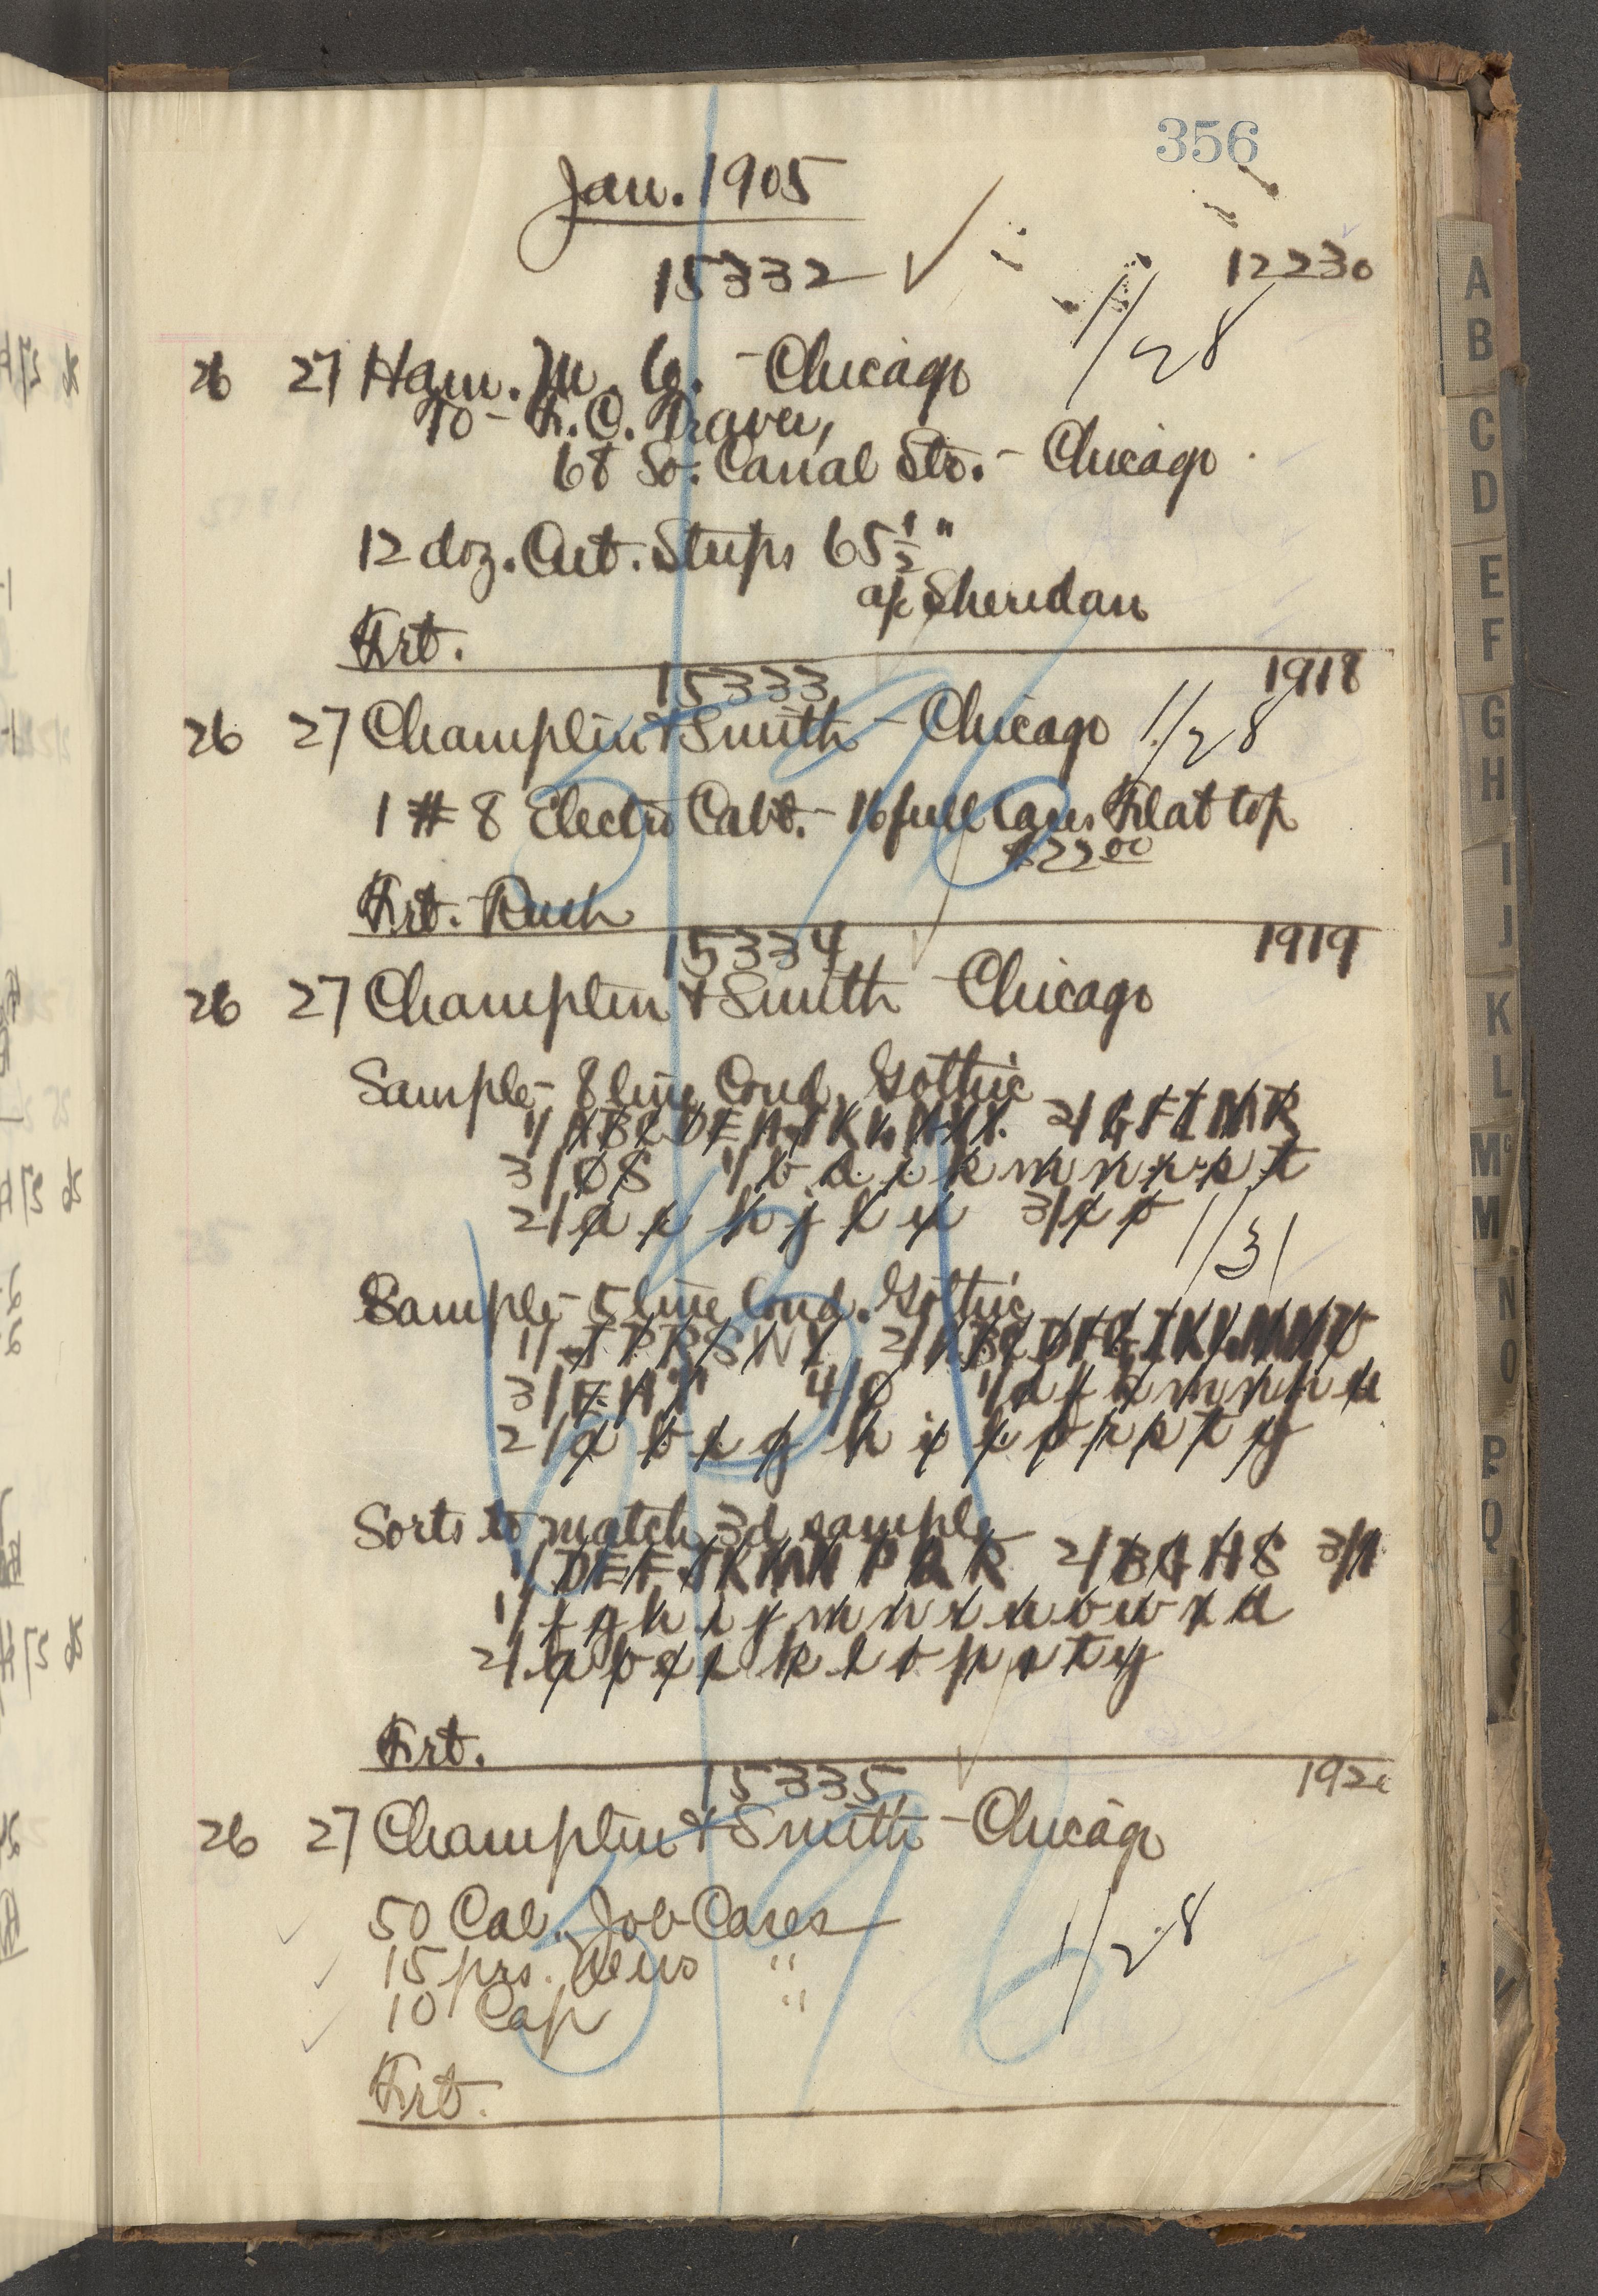 356
Jan. 1905
15332 12230
26 27 Ham. M. Co. - Chicago 1/28
To - F. C. Traver,
68 So. Canal Str. - Chicago
12 doz. Cut. Strips 65 1/2"
a/c Sheridan
Frt.
15333 1918
26 27 Champlin & Smith - Chicago 1/28
1 # 8 Electro Cabt. - 16 full Cases Flat top
$22.00
Frt. Rush
15334 1919
26 27 Champlin & Smith Chicago
Sample - 8 line Cond. Gothic
2/ G F I M R
3/ O S 1/ b d i k m n r s t
2/ a e h j l u 3/ c o
1/31
Sample - 5 line Cond. Gothic
1/ J P R S W Y 2/ A B C D F G I K L M N U
3/ E H T 4/ O 1/ d f k m n h u
2/ a b e g h i l o r s t y
Sorts to match 3d sample
1/ D E F J K M N P Q R 2/ B G H S 3/ A
2/ a b e k l o p r t y
Frt.
15335 1920
26 27 Champlin & Smith - Chicago
50 Cal. Job Cases 1/28
15 prs. News "
10 Cap "
Frt.
A
B
C
D
E
F
G
H
I
J
K
L
Mc
M
N
O
P
Q